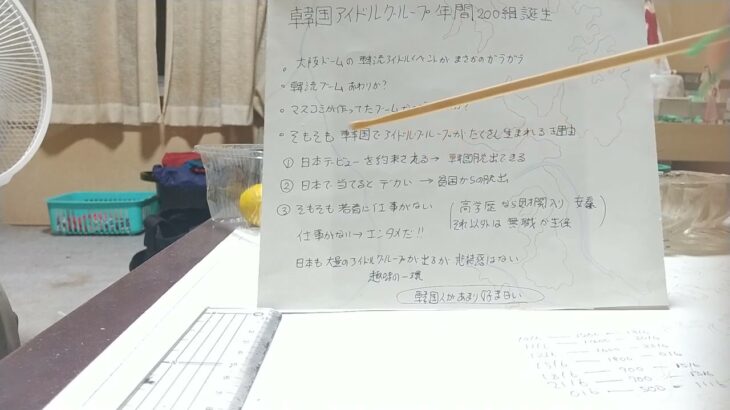 韓国アイドルグループ 年間200組誕生
・大阪ドームの韓流アイドルイベントがまさかのガラガラ
・韓流ブームおわりか?
・マスコミが作ってたブーム
・そもそも韓国でアイドルグループがたくさん生まれる理由
① 日本デビューを約束される → 韓国脱出できる
② 日本で当てるとデカい → 貧国からの脱出
③ そもそも若者に仕事がない (高学歴なら財閥入り 安泰
それ以外は無職が主体)
仕事がない → エンタメだ!!
日本も大量のアイドルグループが出るが悲壮感はない
趣味の一環
韓国人があまり好まない